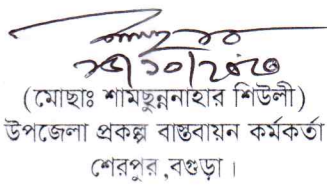 (মোছাঃ শামছুন্নাহার শিউলী)
উপজেলা প্রকল্প বাস্তবায়ন কর্মকর্তা
শেরপুর,বগুড়া।